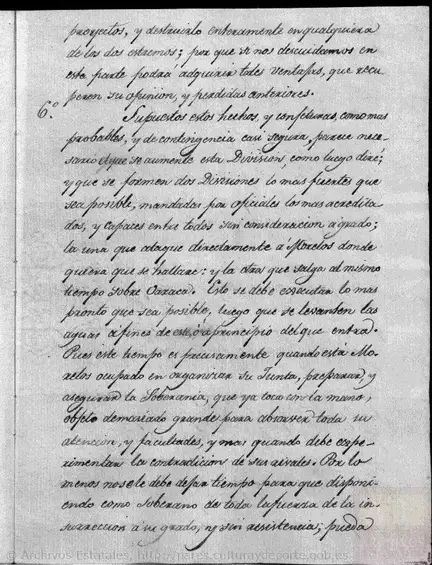 proyectos, y destruirlo enteramente en qualquiera
de los dos estremos; por que si nos descuidamos en
esta parte podrá adquirir tales ventajas, que recu
peren su opinion, y perdidas anteriores.
6.º Supuestos estos hechos, y conjeturas, como mas
probables, y de contingencia casi segura, parece nece
sario el que se aumente esta Division como luego diré;
y que se formen dos Divisiones lo mas fuertes que
sea posible, mandadas por oficiales los mas acredita
dos, y capaces entre todos sin consideracion a grado;
la una que ataque directamente á Morelos donde
quiera que se hallare: y la otra que salga al mismo
tiempo sobre Oaxaca. Esto se debe executar lo mas
pronto que sea posible, luego que se levanten las
aguas a fines de este, ó a principio del que entra.
Pues este tiempo es precisamente quando está Mo
relos ocupado en organizar su Junta, preparar, y
asegurar la Soberania, que ya toco con la mano,
objeto demasiado grande para absorver toda su
atencion, y facultades, y mas quando debe espe-
rimentar la contradicion de sus rivales. Por lo
menos no se le debe dejar tiempo para que disponi-
endo como soberano de toda la fuerza de la in-
surreccion a su grado, y sin resistencia; pueda
© Archivos Estatales, http://pares.culturaydeporte.gob.es